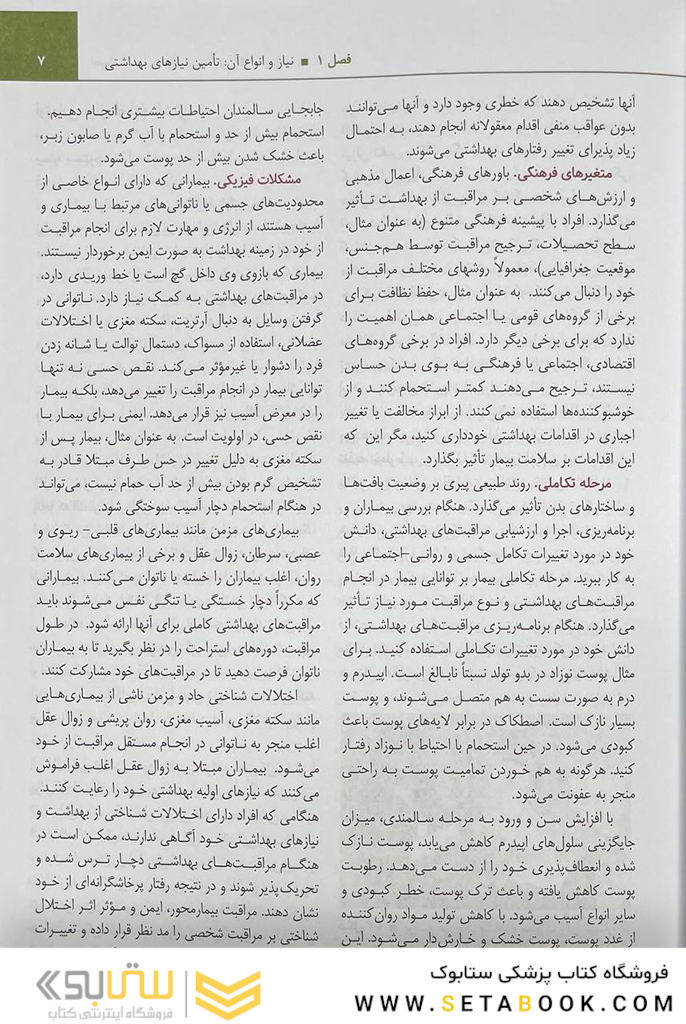 فصل ۱ ■ نیاز و انواع آن: تأمین نیازهای بهداشتی
۷
آنها تشخیص دهند که خطری وجود دارد و آنها می‌توانند
بدون عواقب منفی اقدام معقولانه انجام دهند، به احتمال
زیاد پذیرای تغییر رفتارهای بهداشتی می‌شوند.
متغیرهای فرهنگی. باورهای فرهنگی، اعمال مذهبی
و ارزش‌های شخصی بر مراقبت از بهداشت تأثیر
می‌گذارد. افراد با پیشینه فرهنگی متنوع (به عنوان مثال،
سطح تحصیلات، ترجیح مراقبت توسط هم‌جنس،
موقعیت جغرافیایی)، معمولاً روشهای مختلف مراقبت از
خود را دنبال می‌کنند. به عنوان مثال، حفظ نظافت برای
برخی از گروه‌های قومی یا اجتماعی همان اهمیت را
ندارد که برای برخی دیگر دارد. افراد در برخی گروه‌های
اقتصادی، اجتماعی یا فرهنگی به بوی بدن حساس
نیستند، ترجیح می‌دهند کمتر استحمام کنند و از
خوشبوکننده‌ها استفاده نمی‌کنند. از ابراز مخالفت یا تغییر
اجباری در اقدامات بهداشتی خودداری کنید، مگر این که
این اقدامات بر سلامت بیمار تأثیر بگذارد.
مرحله تکاملی. روند طبیعی پیری بر وضعیت بافت‌ها
و ساختارهای بدن تأثیر می‌گذارد. هنگام بررسی بیماران و
برنامه‌ریزی، اجرا و ارزشیابی مراقبت‌های بهداشتی، دانش
خود در مورد تغییرات تکامل جسمی و روانی-اجتماعی را
به کار ببرید. مرحله تکاملی بیمار بر توانایی بیمار در انجام
مراقبت‌های بهداشتی و نوع مراقبت مورد نیاز تأثیر
می‌گذارد. هنگام برنامه‌ریزی مراقبت‌های بهداشتی، از
دانش خود در مورد تغییرات تکاملی استفاده کنید. برای
مثال پوست نوزاد در بدو تولد نسبتاً نابالغ است. اپیدرم و
درم به صورت سست به هم متصل می‌شوند، و پوست
بسیار نازک است. اصطکاک در برابر لایه‌های پوست باعث
کبودی می‌شود. در حین استحمام با احتیاط با نوزاد رفتار
کنید. هرگونه به هم خوردن تمامیت پوست به راحتی
منجر به عفونت می‌شود.
با افزایش سن و ورود به مرحله سالمندی، میزان
جایگزینی سلول‌های اپیدرم کاهش می‌یابد، پوست نازک
شده و انعطاف‌پذیری خود را از دست می‌دهد. رطوبت
پوست کاهش یافته و باعث ترک پوست، خطر کبودی و
سایر انواع آسیب می‌شود. با کاهش تولید مواد روان‌کننده
از غدد پوست، پوست خشک و خارش‌دار می‌شود. این
جابجایی سالمندان احتیاطات بیشتری انجام دهیم.
استحمام بیش از حد و استحمام با آب گرم یا صابون زبر،
باعث خشک شدن بیش از حد پوست می‌شود.
مشکلات فیزیکی. بیمارانی که دارای انواع خاصی از
محدودیت‌های جسمی یا ناتوانی‌های مرتبط با بیماری و
آسیب هستند، از انرژی و مهارت لازم برای انجام مراقبت
از خود در زمینه بهداشت به صورت ایمن برخوردار نیستند.
بیماری که بازوی وی داخل گچ است یا خط وریدی دارد،
در مراقبت‌های بهداشتی به کمک نیاز دارد. ناتوانی در
گرفتن وسایل به دنبال آرتریت، سکته مغزی یا اختلالات
عضلانی، استفاده از مسواک، دستمال توالت یا شانه زدن
فرد را دشوار یا غیرمؤثر می‌کند. نقص حسی نه تنها
توانایی بیمار در انجام مراقبت را تغییر می‌دهد، بلکه بیمار
را در معرض آسیب نیز قرار می‌دهد. ایمنی برای بیمار با
نقص حسی، در اولویت است. به عنوان مثال، بیمار پس از
سکته مغزی به دلیل تغییر در حس طرف مبتلا قادر به
تشخیص گرم بودن بیش از حد آب حمام نیست، می‌تواند
در هنگام استحمام دچار آسیب سوختگی شود.
بیماری‌های مزمن مانند بیماری‌های قلبی- ریوی و
عصبی، سرطان، زوال عقل و برخی از بیماری‌های سلامت
روان، اغلب بیماران را خسته یا ناتوان می‌کنند. بیمارانی
که مکرراً دچار خستگی یا تنگی نفس می‌شوند باید
مراقبت‌های بهداشتی کاملی برای آنها ارائه شود. در طول
مراقبت، دوره‌های استراحت را در نظر بگیرید تا به بیماران
ناتوان فرصت دهید تا در مراقبت‌های خود مشارکت کنند.
اختلالات شناختی حاد و مزمن ناشی از بیماری‌هایی
مانند سکته مغزی، آسیب مغزی، روان پریشی و زوال عقل
اغلب منجر به ناتوانی در انجام مستقل مراقبت از خود
می‌شود. بیماران مبتلا به زوال عقل اغلب فراموش
می‌کنند که نیازهای اولیه بهداشتی خود را رعایت کنند.
هنگامی که افراد دارای اختلالات شناختی از بهداشت و
نیازهای بهداشتی خود آگاهی ندارند، ممکن است در
هنگام مراقبت‌های بهداشتی دچار ترس شده و
تحریک‌پذیر شوند و در نتیجه رفتار پرخاشگرانه‌ای از خود
نشان دهند. مراقبت بیمارمحور، ایمن و مؤثر اثر اختلال
شناختی بر مراقبت شخصی را مد نظر قرار داده و تغییرات
فروشگاه کتاب پزشکی ستابوک
WWW.SETABOOK.COM
ستابوک
فروشگاه اینترنتی کتاب